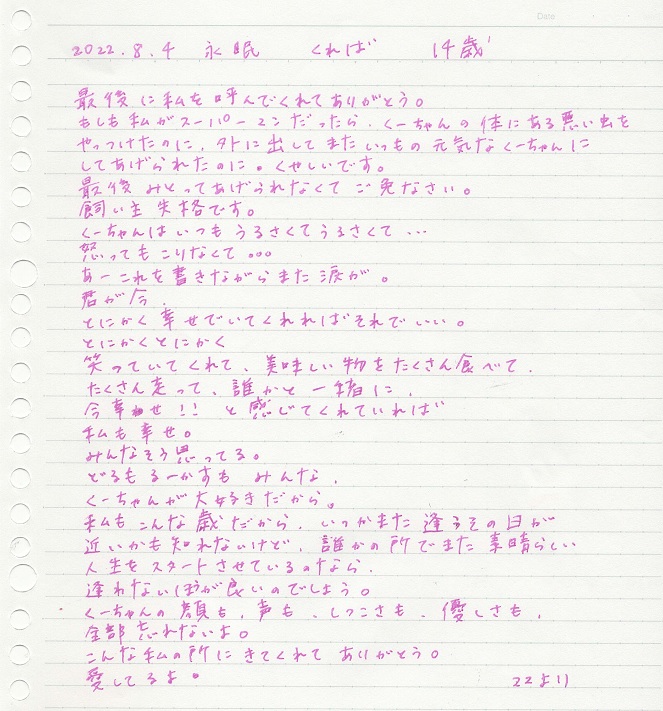 Date
2022.8.4 永眠 くれは゛ 14歳
最後に私を呼んでくれてありがとう。
もしも私がスーパーマンだったら、くーちゃんの体にある悪い虫を
やっつけたのに、外に出してまたいつもの元気なくーちゃんに
してあげられたのに。くやしいです。
最後みとってあげられなくてご免なさい。
飼い主失格です。
くーちゃんはいつもうるさくてうるさくて…
怒ってもこりなくて…
あーこれを書きながらまた涙が。
君が今、
とにかく幸せでいてくれればそれでいい。
とにかくとにかく
笑っていてくれて、美味しい物をたくさん食べて、
たくさん走って、誰かと一緒に、
今幸せ!! と感じてくれていれば
私も幸せ。
みんなそう思ってる。
どるもるーかすもみんな、
くーちゃんが大好きだから。
私もこんな歳だから、いつかまた逢うその日が
近いかも知れないけど、誰かの所でまた素晴らしい
人生をスタートさせているのなら、
逢わないほうが良いのでしょう。
くーちゃんの顔も、声も、しつこさも、優しさも、
全部忘れないよ。
こんな私の所にきてくれてありがとう。
愛してるよ。 22より